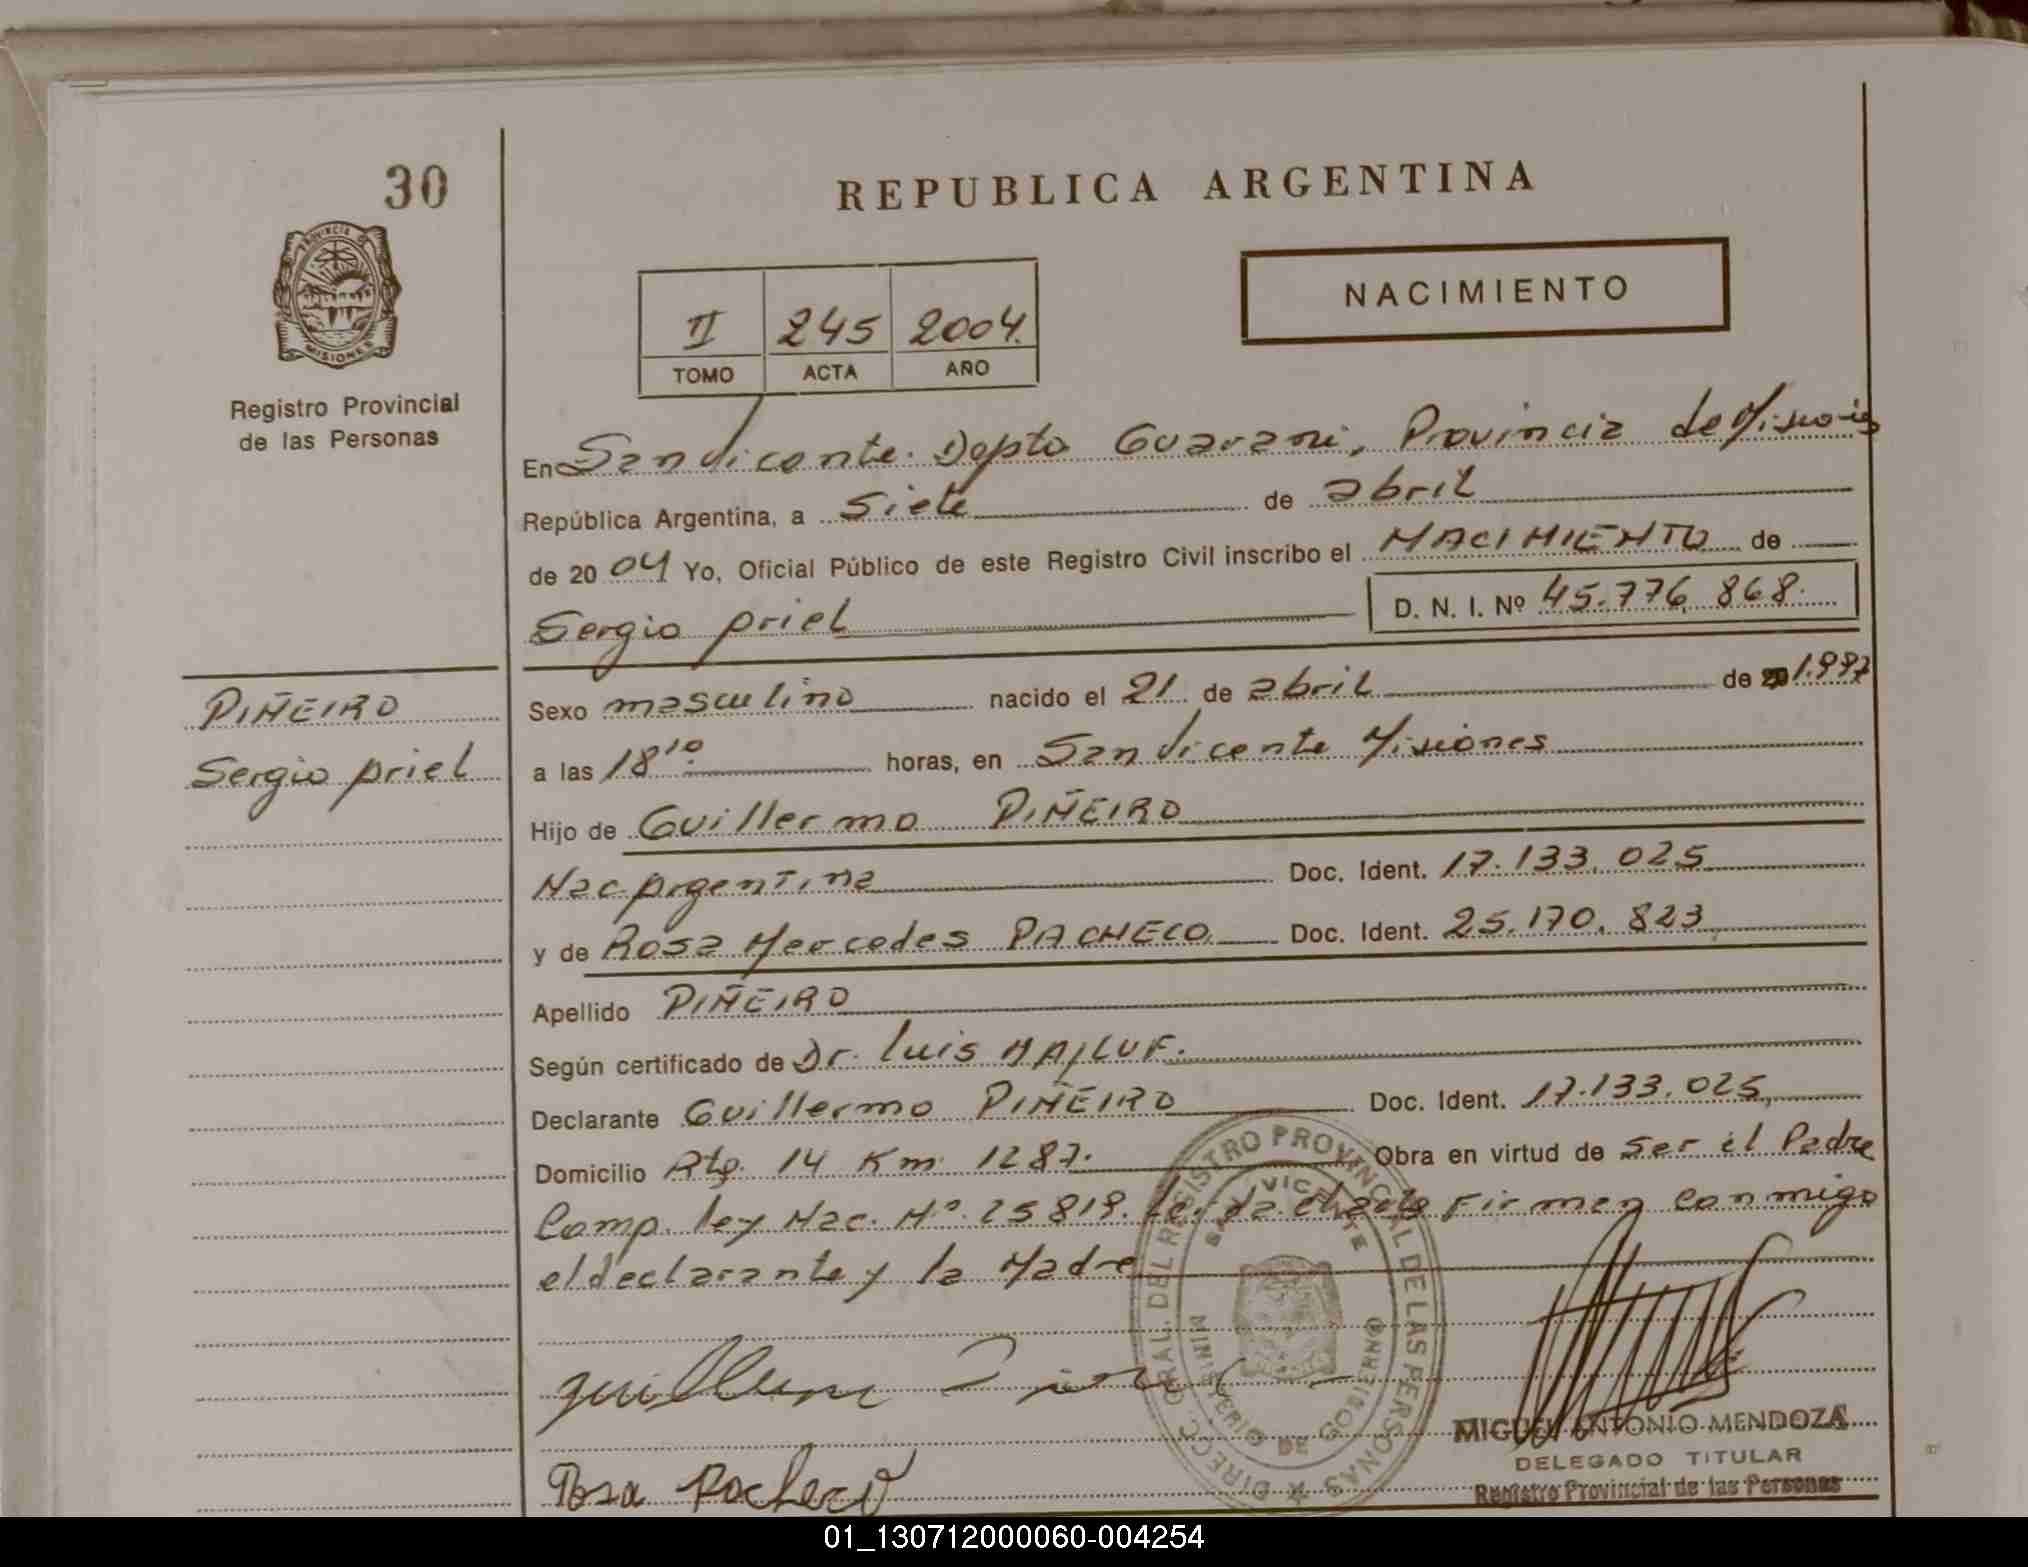 30
REPUBLICA ARGENTINA
PROVINCIA DE
MISIONES
NACIMIENTO
II 245 2004.
TOMO ACTA AÑO
Registro Provincial
de las Personas
En San Vicente. Depto Guarani, Provincia de Misiones
República Argentina, a siete de abril
de 2004 Yo, Oficial Público de este Registro Civil inscribo el NACIMIENTO de
Sergio Ariel D. N. I. Nº 45.776.868.
PIÑEIRO
Sergio Ariel
Sexo masculino nacido el 21 de abril de 1.997
a las 18¹⁰ horas, en San Vicente Misiones
Hijo de Guillermo PIÑEIRO
Nac Argentina Doc. Ident. 17.133.025
y de Rosa Mercedes PACHECO Doc. Ident. 25.170.823
Apellido PIÑEIRO
Según certificado de Dr. Luis MAJLUF.
Declarante Guillermo PIÑEIRO Doc. Ident. 17.133.025,
Domicilio Rta. 14 Km 1287. Obra en virtud de ser el Padre
Comp. ley Nac. Nº 25819. Leida el acta Firman conmigo
el declarante y la Madre
DIRECC. GRAL. DEL REGISTRO PROVINCIAL DE LAS PERSONAS
SAN VICENTE
MINISTERIO DE GOBIERNO
Guillermo
Rosa Pacheco
MIGUEL ANTONIO MENDOZA
DELEGADO TITULAR
Registro Provincial de las Personas
01_130712000060-004254